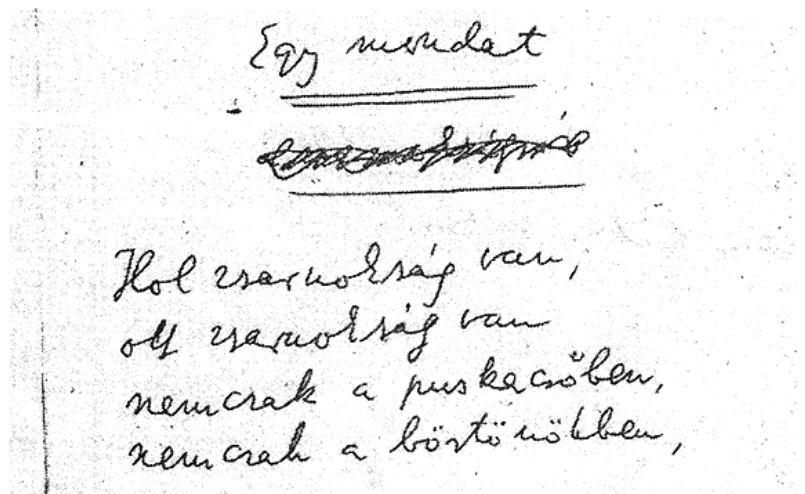 Egy mondat
Hol zsarnokság van,
ott zsarnokság van
nemcsak a puskacsőben,
nemcsak a börtönökben,